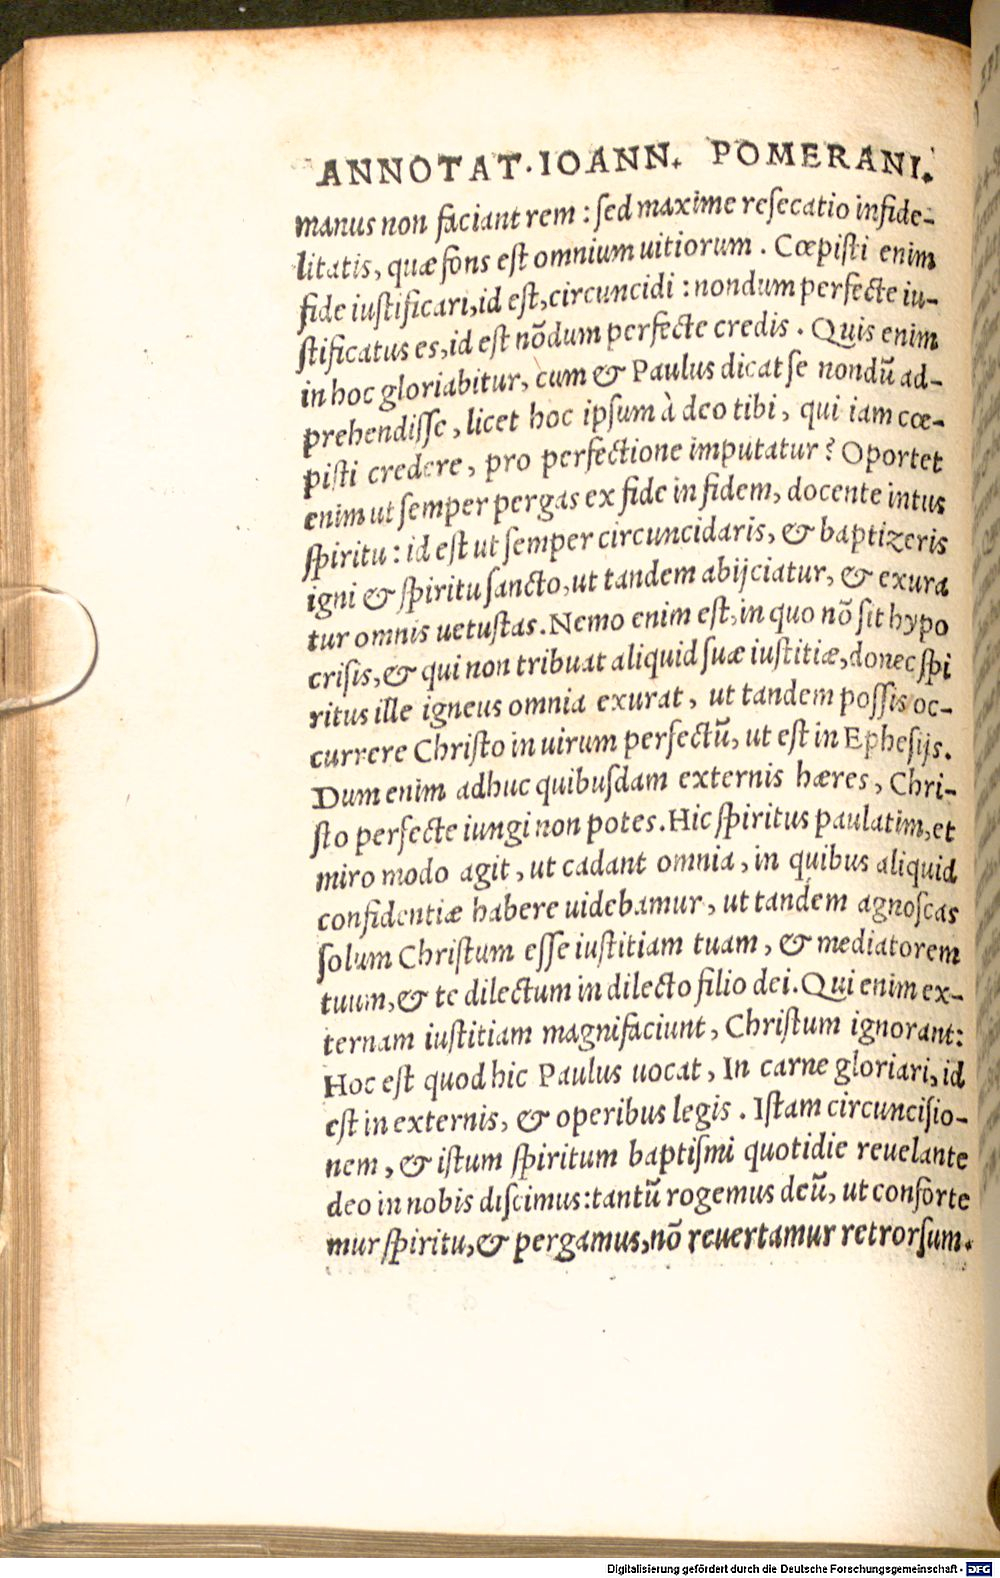 ANNOTAT. IOANN. POMERANI.
manus non faciant rem : sed maxime resecatio infide-
litatis, quæ fons est omnium uitiorum . Cœpisti enim
fide iustificari, id est, circuncidi : nondum perfecte iu-
stificatus es, id est nõdum perfecte credis . Quis enim
in hoc gloriabitur, cum & Paulus dicat se nondũ ad-
prehendisse , licet hoc ipsum à deo tibi, qui iam cœ-
pisti credere, pro perfectione imputatur ? Oportet
enim ut semper pergas ex fide in fidem, docente intus
spiritu : id est ut semper circuncidaris, & baptizeris
igni & spiritu sancto, ut tandem abijciatur, & exura
tur omnis uetustas. Nemo enim est, in quo nõ sit hypo
crisis, & qui non tribuat aliquid suæ iustitiæ, donec spi
ritus ille igneus omnia exurat, ut tandem possis oc-
currere Christo in uirum perfectũ, ut est in Ephesijs.
Dum enim adhuc quibusdam externis hæres, Chri-
sto perfecte iungi non potes. Hic spiritus paulatim, et
miro modo agit, ut cadant omnia, in quibus aliquid
confidentiæ habere uidebamur, ut tandem agnoscas
solum Christum esse iustitiam tuam, & mediatorem
tuum, & te dilectum in dilecto filio dei. Qui enim ex-
ternam iustitiam magnifaciunt, Christum ignorant:
Hoc est quod hic Paulus uocat, In carne gloriari, id
est in externis, & operibus legis . Istam circuncisio-
nem, & istum spiritum baptismi quotidie reuelante
deo in nobis discimus: tantũ rogemus deũ, ut conforte
mur spiritu, & pergamus, nõ reuertamur retrorsum.
Digitalisierung gefördert durch die Deutsche Forschungsgemeinschaft - DFG